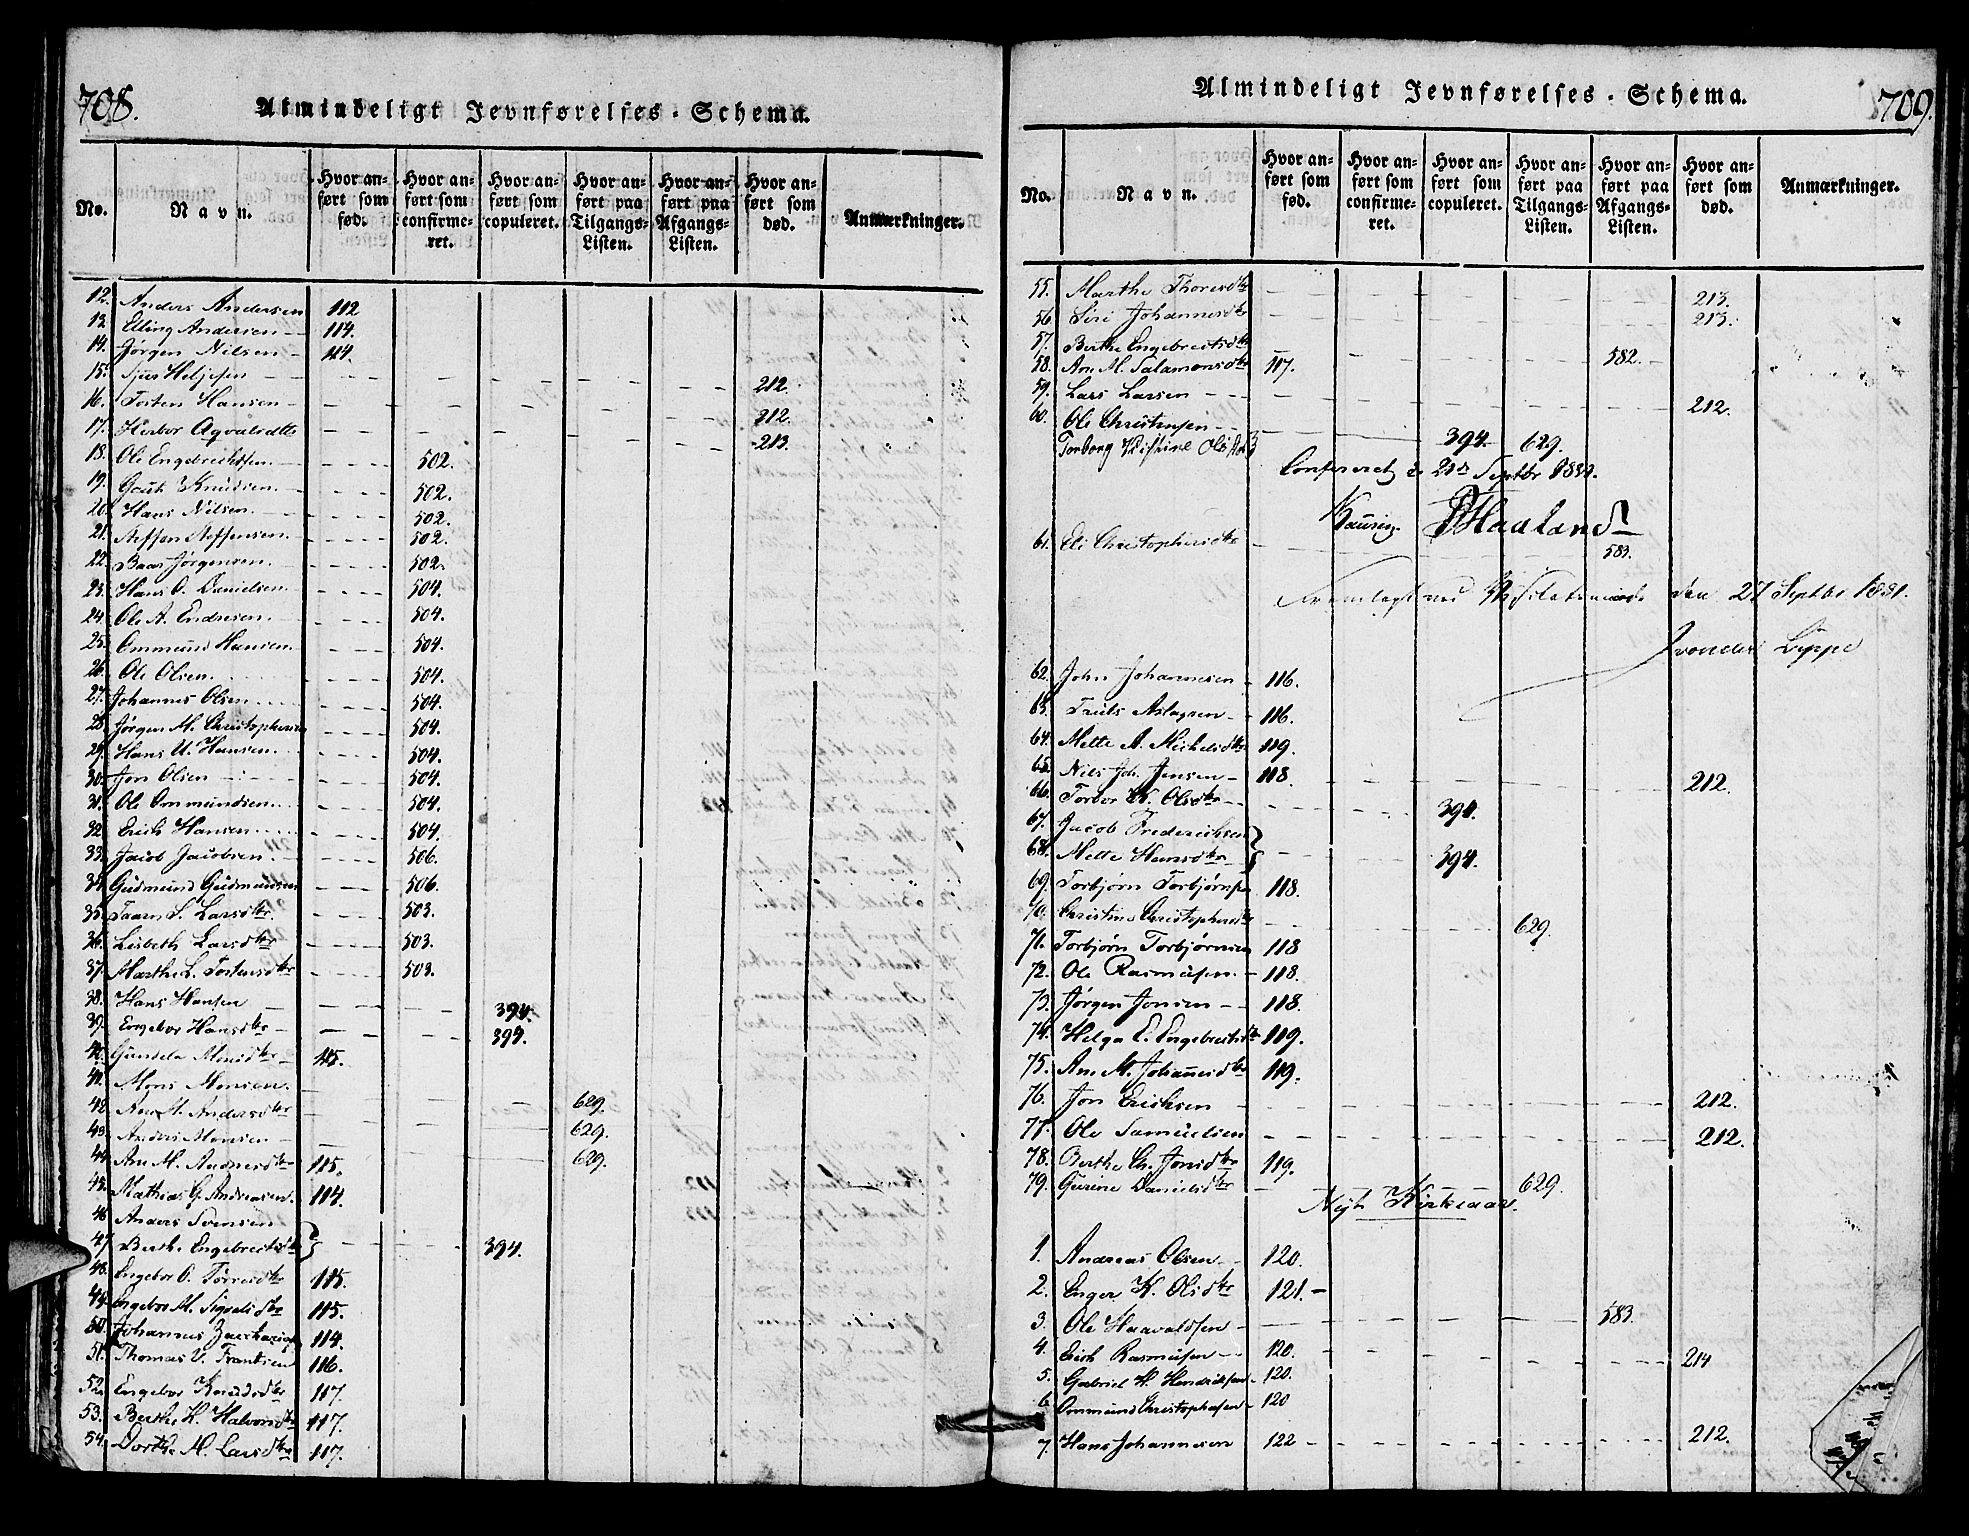 708.
Almindeligt Jevnførelses-Schema.
No.
Navn.
Hvor anført som fød.
Hvor anført som confirmeret.
Hvor anført som copuleret.
Hvor anført paa Tilgangs-Listen.
Hvor anført paa Afgangs-Listen.
Hvor anført som død.
Anmærkninger.
12. Anders Andersen 112
13. Elling Andersen 114.
14. Jørgen Nilsen 114.
15. Sjur Heljesen 212.
16. Torsten Hansen 212.
17. Herbor 213.
18. Ole Engebrechtsen 502.
19. Gaut Knudsen 502.
20. Hans Nilsen 502.
21. Steffen Steffensen 502.
22. Baar Jørgensen 502.
23. Hans O. Danielsen 504.
24. Ole A. Endresen 504.
25. Ommund Hansen 504.
26. Ole Olsen 504.
27. Johannes Olsen 504.
28. Jørgen M. Christophersen 504.
29. Hans U. Hansen 504.
30. Jon Olsen 504.
31. Ole Ommundsen 504.
32. Erich Hansen 504.
33. Jacob Jacobsen 506.
34. Gudmund Gudmunsen 506.
35. Taarn S. Larsdtr 503.
36. Lisbeth Larsdtr 503.
37. Marthe L. Tostensdtr 503.
38. Hans Hansen 394.
39. Engebor Hansdtr 394.
40. Gundela Monsdtr 115.
41. Mons Monsen
42. Ane M. Andersdtr 629.
43. Anders Monsen 629.
44. Ane M. Andersdtr 115. 629.
45. Mathias G. Andreasen 114.
46 Anders Svensen
47 Berthe Engebretsdtr 394.
48. Engebor O. Torresdtr 115.
49. Engebor M. Sigvalsdtr 115.
50 Johannes Zachariasen 114.
51. Thomas V. Frantsen 116.
52. Engebor Knudsdtr 117.
53. Berthe K. Halvorsdtr 117.
54. Dorthe M. Larsdtr 117.
709.
Almindeligt Jevnførelses-Schema.
No.
Navn.
Hvor anført som fød.
Hvor anført som confirmeret.
Hvor anført som copuleret.
Hvor anført paa Tilgangs-Listen.
Hvor anført paa Afgangs-Listen.
Hvor anført som død.
Anmærkninger.
55. Marthe Thoresdtr 213.
56. Siri Johannesdtr 213.
57. Berthe Engebrectsdtr 582.
58. Ane M. Salamonsdtr 117.
59. Lars Larsen 212.
60. Ole Christensen
Tonborg Kristine Olsdtr 394. 629.
Confereret d. 21de Septbr 1831.
Haaland
61. Eli Christophersdtr 583.
Fremlagt ved Visitatsen den 27 Septbr 1831.
von der Lippe
62. John Johannesen 116.
63. Truls Aslagsen 116.
64. Mette A. Michelsdtr 119.
65. Nils Joh. Jensen 118. 212.
66. Torbor K. Olsdtr 394.
67. Jacob Frederichsen
68. Mette Hansdtr 394.
69. Torbjørn Torbjørnsen 118.
70. Christine Christophersdtr 629.
71. Torbjørn Torbjørnsen 118
72. Ole Rasmusen 118.
73. Jørgen Jonsen 118.
74. Helga E. Engebrectsdtr 119.
75. Ane M. Johanesdtr 119.
76. Jon Erichsen 212.
77. Ole Samuelsen 212.
78. Berthe Ch. Jonsdtr 119.
79. Gurine Danielsdtr 629.
Nyt Kirkeaar.
1. Andreas Olsen 120.
2. Enger K. Olsdtr 121.
3. Ole Haavaldsen 583.
4. Erich Rasmusen 120. 214
5. Gabriel H. Hendriksen 120.
6 Ommund Christophersen 120
7. Hans Johannesen 122 212.